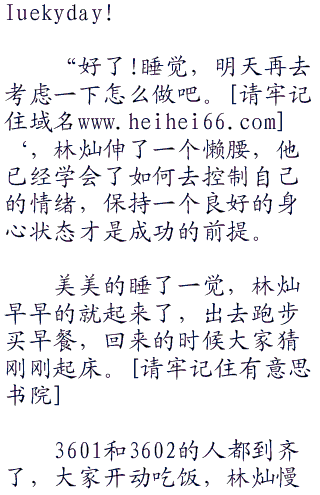 Iuekyday!
“好了!睡觉，明天再去
考虑一下怎么做吧。[请牢记
住域名www.heihei66.com]
‘，林灿伸了一个懒腰，他
已经学会了如何去控制自己
的情绪，保持一个良好的身
心状态才是成功的前提。
美美的睡了一觉，林灿
早早的就起来了，出去跑步
买早餐，回来的时候大家猜
刚刚起床。[请牢记住有意思
书院]
3601和3602的人都到齐
了，大家开动吃饭，林灿慢